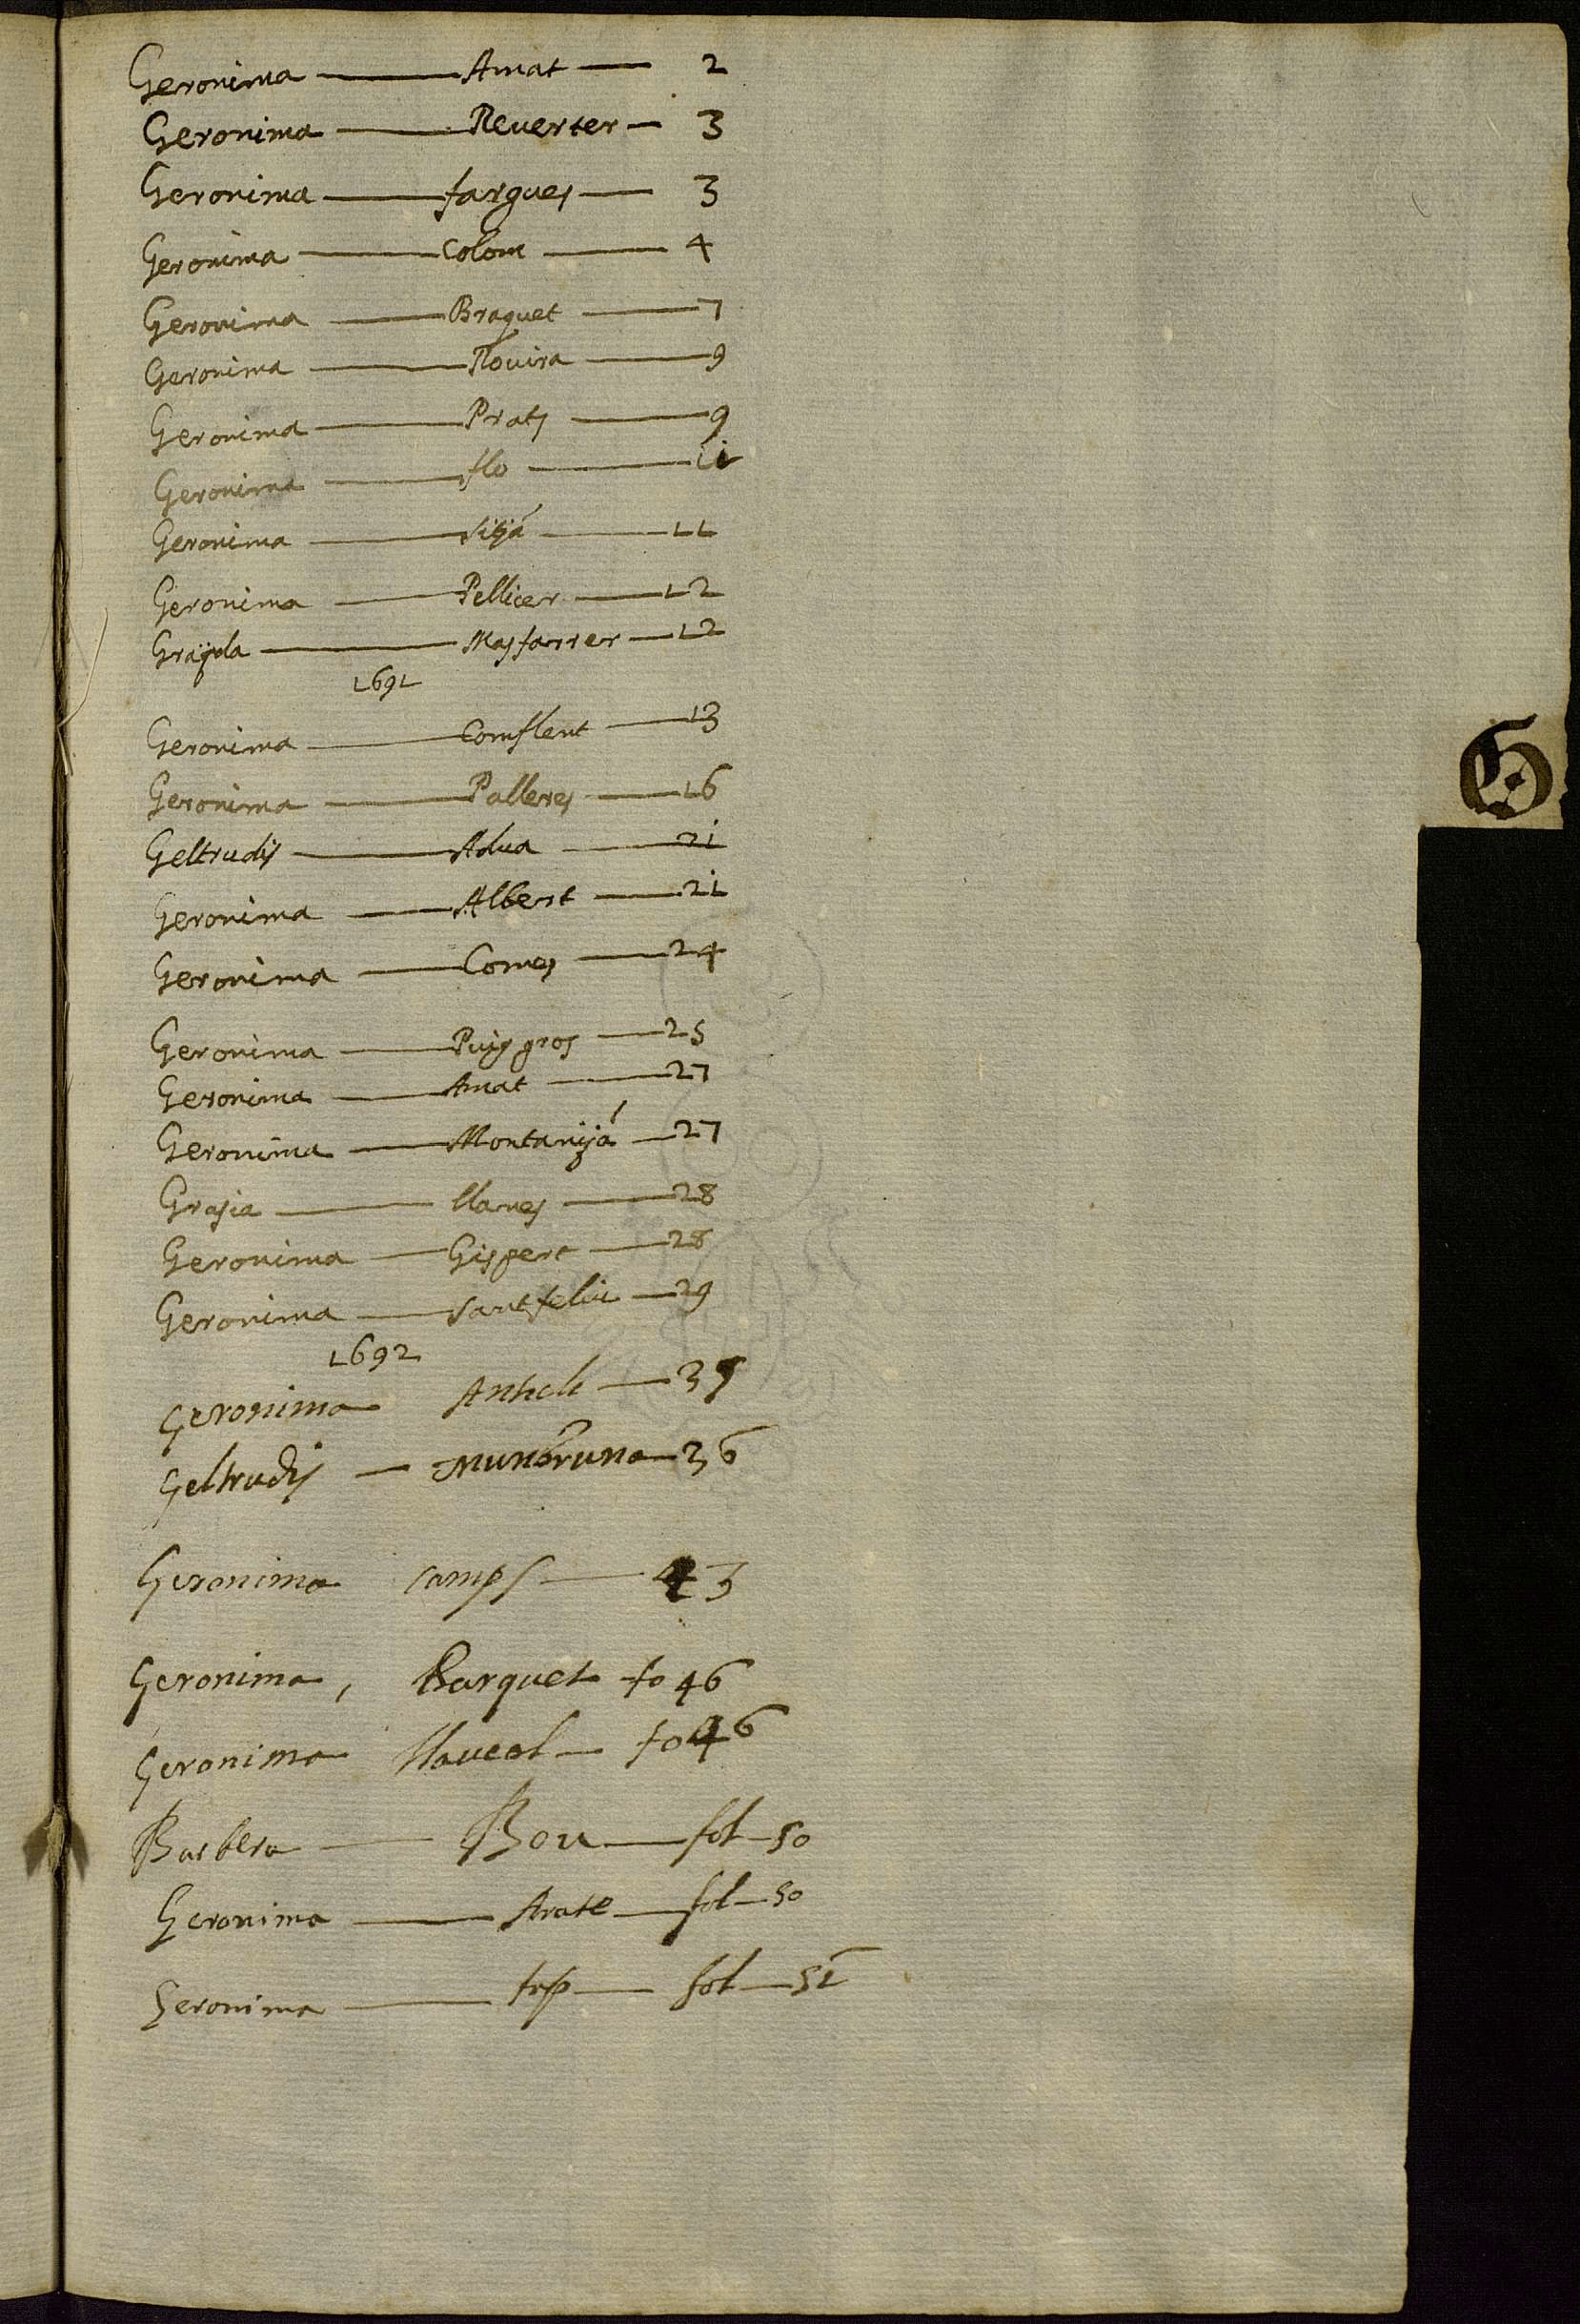 Geronima — Amat — 2
Geronima — Reverter — 3
Geronima — fargues — 3
Geronima — Colom — 4
Geronima — Braquet — 7
Geronima — Rovira — 9
Geronima — Prats — 9
Geronima — flo — 11
Geronima — Sitjá — 11
Geronima — Pellicer — 12
Masfarrer — 12
1691
Geronima — Comflent — 13
Geronima — Palleres — 16
Geltrudis — Adua — 21
Geronima — Albert — 21
Geronima — Comes — 24
Geronima — Puiggros — 25
Geronima — Amat — 27
Geronima — Montanijá — 27
Grasia — llanes — 28
Geronima — Gispert — 28
Geronima — Santfeliu — 29
1692
Geronima Antich — 35
Geltrudis — Munbruna — 36
Geronima camps — 43
Geronima, Barquet fo 46
Geronima fo 46
Barbera — Bou — fol — 50
Geronima — Arate — fol — 50
Geronima — — fol — 51
G